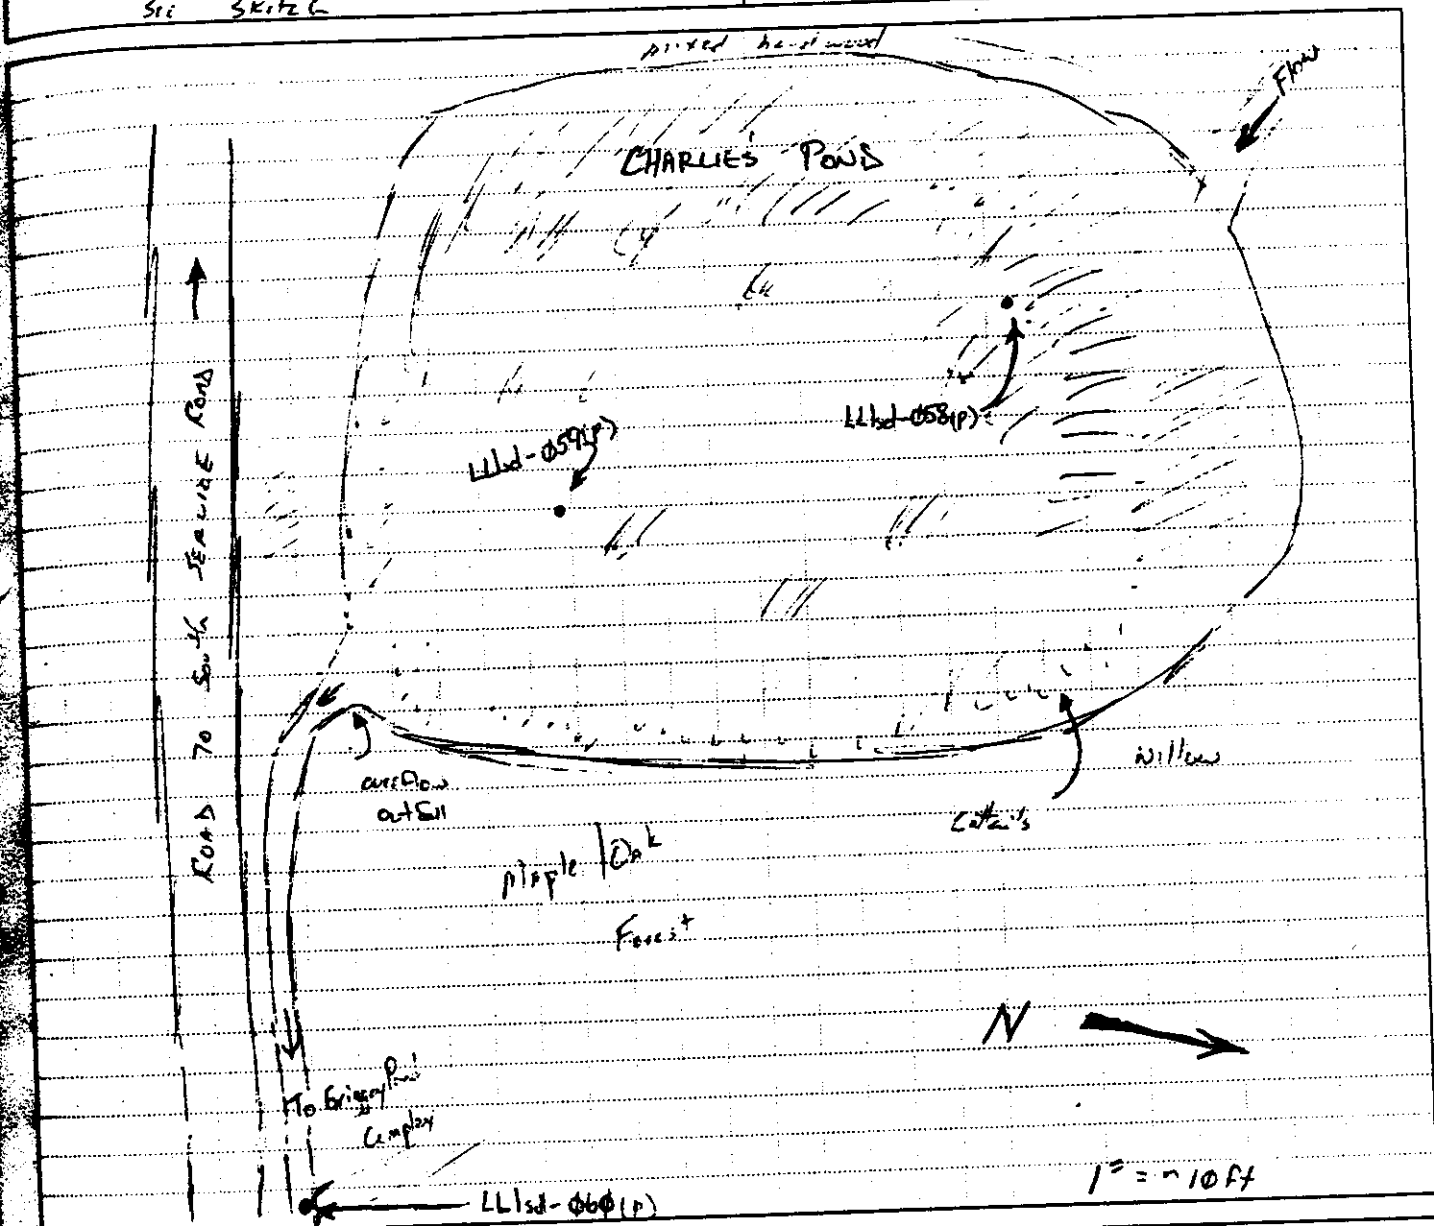 See Sketch
mixed hardwood
Flow
CHARLIE'S POND
LL1sd-Ø58(p)
LL1sd-Ø59(p)
ROAD TO South SERVICE ROAD
overflow
outfall
Willow
Cattails
Maple / Oak
Forest
N
To
Pond
Complex
1" = ~ 10 ft
LL1sd-Ø6Ø(p)